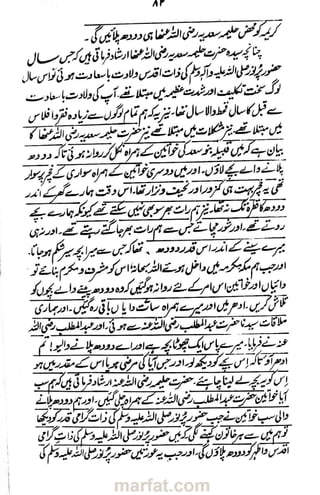 ۸۲
کریمہ کو محض حلیمہ سعدیہ رضی اللہ عنھا ہی دودھ پلائیں گی۔
چنانچہ سیدہ حضرت حلیمہ سعدیہ رضی اللہ عنھا ارشاد فرماتی ہیں کہ جس سال
حضور پرنور صلی اللہ علیہ وآلہ وسلم کی ذات اقدس ولادت با سعادت ہوئی تو اس سال
لوگ سخت تکلیف اور شدت عظیم میں مبتلا تھے۔ آپ کی ولادت با سعادت سے
قبل کا سال قحط والا سال تھا۔ نیز یہ کہ ہم تمام لوگوں سے زیادہ فقر و افلاس
میں مبتلا تھے۔ نیز مشکلات میں مبتلا تھے نیز حضرت حلیمہ سعدیہ رضی اللہ عنھا کا
بیان ہے کہ میں قبیلہ بنو سعد کی خواتین کے ہمراہ نکل کر روانہ ہوئی تاکہ دودھ
پلانے والے بچے لاؤں۔ اور میں دوسری خواتین کے ہمراہ سواری کے خچر پر سوار
تھی یہ خچر بہت ہی کمزور اور نحیف و نزار تھا۔ اس وقت ہمارے گھر کے اندر
دودھ کا قطرہ تک نہ تھا۔ نیز ہم رات بھر سو بھی نہیں سکتے تھے کیونکہ ہمارے بچے
روتے تھے۔ اور شور مچاتے تھے جس سے ہم رات بھر جاگتے رہتے تھے۔ اور نہ ہی
میرے سینے کے اندر اس قدر دودھ تھا کہ جس سے میرا بچہ سیر شکم ہو جاتا۔
اور جب ہم مکہ مکرمہ میں داخل ہوئے اللہ سبحانہٗ اس کو مشرف و مکرم بنائے تو
دائیاں اور خواتین اس امر کے لئے روانہ ہو گئیں کہ وہ دودھ پینے والے بچوں کو
تلاش کریں۔ ادھر میں اور میرے ہمراہ سات دایاں باقی رہ گئیں۔ اور ہماری
ملاقات سیدنا حضرت عبدالمطلب رضی اللہ عنہ سے ہوئی۔ اور عبدالمطلب رضی اللہ
عنہ نے فرمایا۔ میرے پاس ایک چھوٹا بچہ ہے اور اے دودھ پلانے والیو! تم
ادھر آؤ تاکہ اس بچے کو دیکھ لو۔ اور جس آیا کی مرضی ہو یا اس کے مقدر میں ہو
اس کو یہ بچہ لے لینا چاہئے۔ حضرت حلیمہ رضی اللہ عنہ ارشاد فرماتی ہیں کہ ہم سب
آیا خواتین حضرت عبدالمطلب رضی اللہ عنہ کے ہمراہ چلی گئیں۔ اور ہم دودھ پلانے
والی سب خواتین نے جب حضور پرنور صلی اللہ علیہ وسلم کی ذات گرامی قدر کو دیکھا
تو ہم میں سے ہر خاتون کہنے لگی کہ میں حضور پرنور صلی اللہ علیہ وسلم کی ذات گرامی
اقدس و اطہر کو دودھ پلاؤں گی۔ اور جب یہ عورتیں حضور پرنور صلی اللہ علیہ وسلم کی
marfat.com